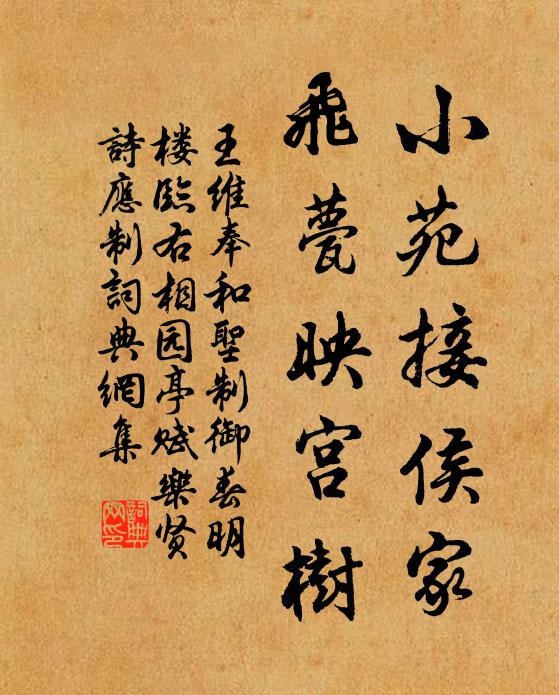 小苑接侯家
飛甍映宮樹
王维奉和聖制御春明
楼臨右相园亭赋樂贤
詩應制詞典網集
詞典
网印